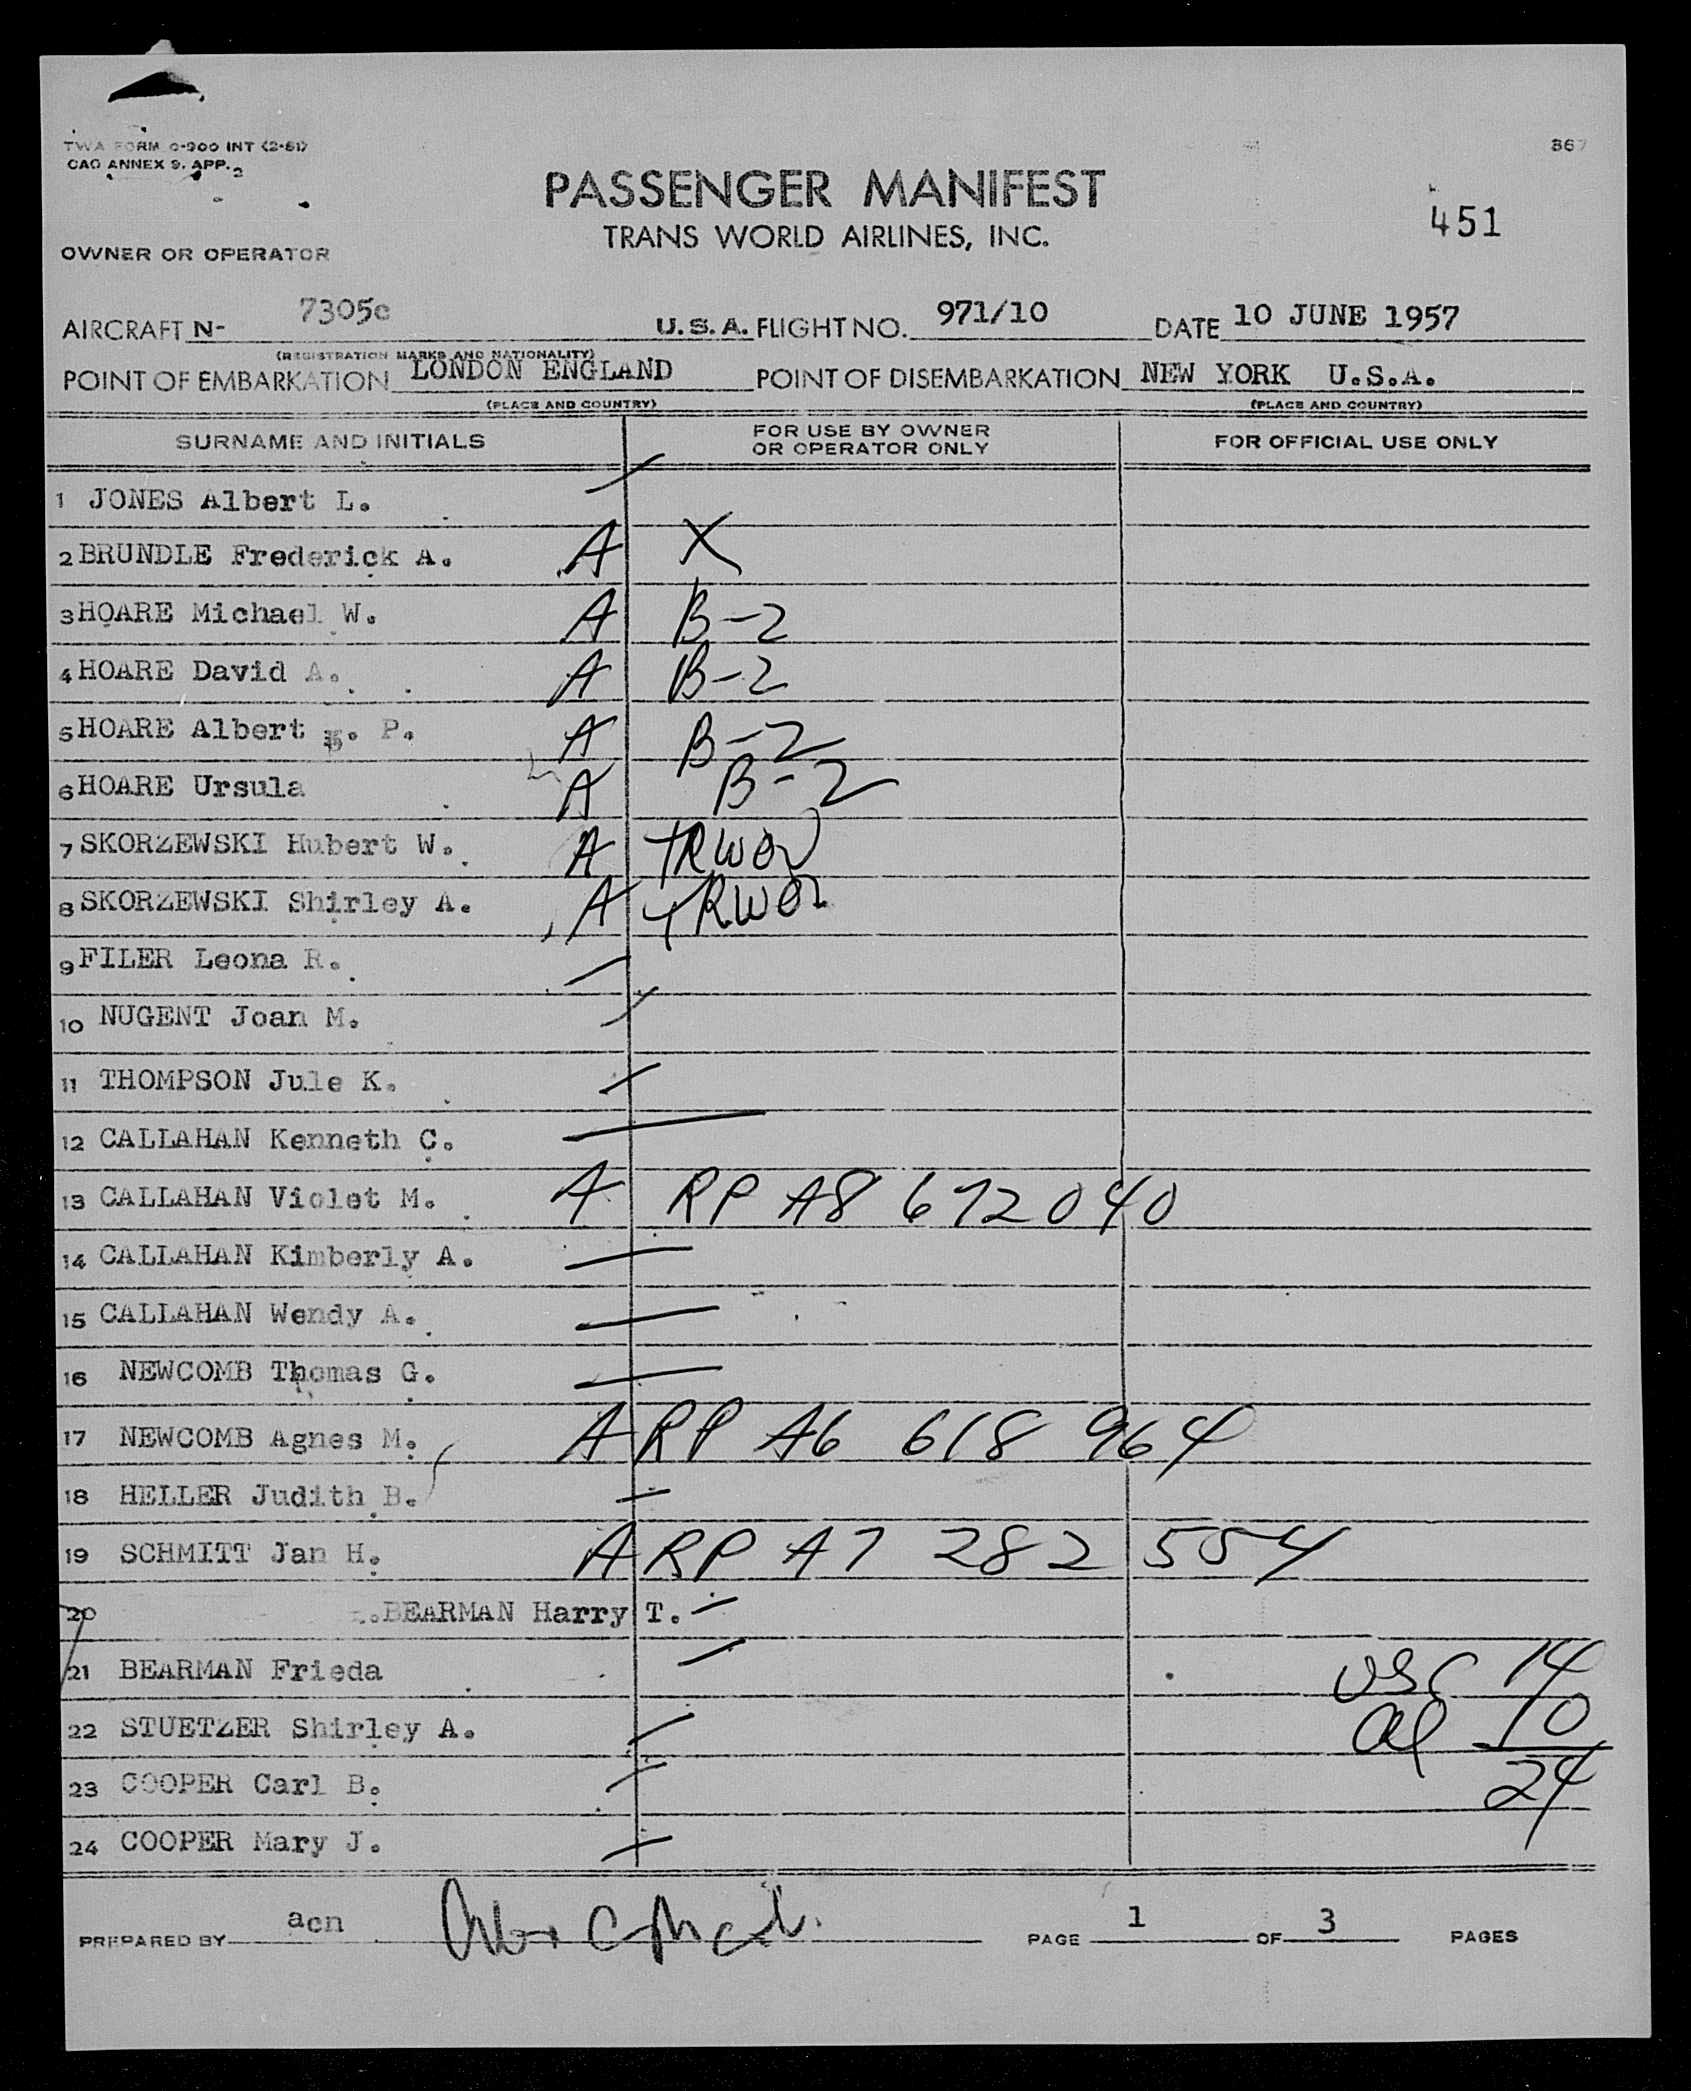 TWA FORM O-900 INT (2-51)
CAO ANNEX 9. APP. 2
867
PASSENGER MANIFEST
TRANS WORLD AIRLINES, INC.
451
OWNER OR OPERATOR
AIRCRAFT N- 7305c U.S.A. FLIGHT NO. 971/10 DATE 10 JUNE 1957
(REGISTRATION MARKS AND NATIONALITY)
POINT OF EMBARKATION LONDON ENGLAND POINT OF DISEMBARKATION NEW YORK U.S.A.
(PLACE AND COUNTRY) (PLACE AND COUNTRY)
SURNAME AND INITIALS FOR USE BY OWNER OR OPERATOR ONLY FOR OFFICIAL USE ONLY
1 JONES Albert L.
2 BRUNDLE Frederick A. A X
3 HOARE Michael W. A B-2
4 HOARE David A. A B-2
5 HOARE Albert P. A B-2
6 HOARE Ursula A B-2
7 SKORZEWSKI Hubert W. A TRWOV
8 SKORZEWSKI Shirley A. A TRWOV
9 FILER Leona R.
10 NUGENT Joan M.
11 THOMPSON Jule K.
12 CALLAHAN Kenneth C.
13 CALLAHAN Violet M. A RP A8 672040
14 CALLAHAN Kimberly A.
15 CALLAHAN Wendy A.
16 NEWCOMB Thomas G.
17 NEWCOMB Agnes M. A RP A6 618 964
18 HELLER Judith B.
19 SCHMITT Jan H. A RP A7 282 554
20 BEARMAN Harry T.
21 BEARMAN Frieda USC 14
22 STUETZER Shirley A. al 10
23 COOPER Carl B. 24
24 COOPER Mary J.
PREPARED BY acn PAGE 1 OF 3 PAGES